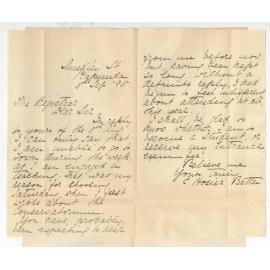 Kapunda
Sep '98
The Registrar
Dear Sir
In reply
to yours of the
I can only say that
I am unable to go to
town during the week,
as I am engaged in
teaching. That was my
reason for choosing
Saturday when I first
wrote about the
Conservatorium.
You have, probably,
been expecting to hear
from me before now
but, having been kept
so long without a
definite reply, I had
begun to feel indifferent
about attending at all,
this year.
I shall be glad to
know whether I am to
become a Student, or
receive my Entrance
fee.
Believe me
Yours truly
E